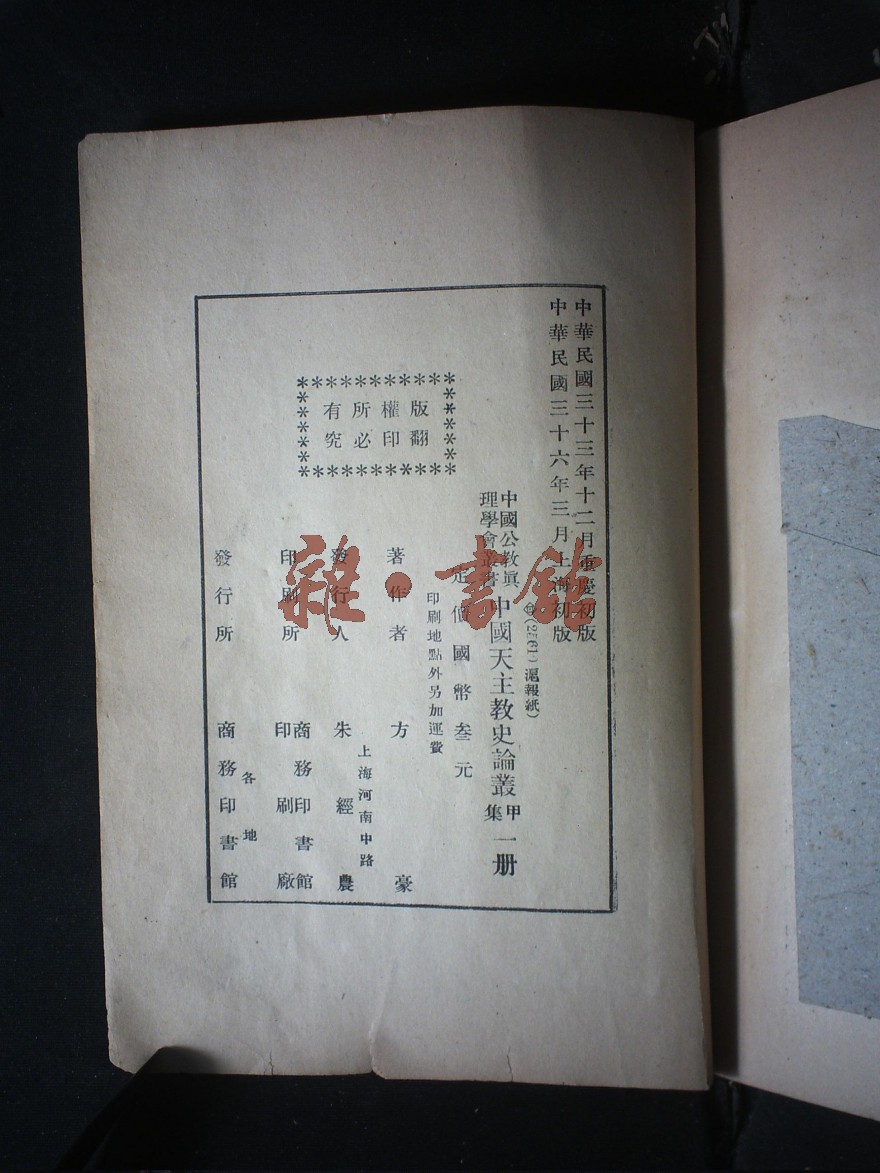 中華民國三十三年十二月重慶初版
中華民國三十六年三月上海初版
(2561)滬報紙)
中國公教眞
理學會叢書
中國天主教史論叢
甲
集
一册
定價國幣叁元
印刷地點外另加運費
版權所有
翻印必究
著作者 方豪
上海河南中路
發行人 朱經農
印刷所 商務印書館
印刷廠
發行所 各地
商務印書館
雜·書館